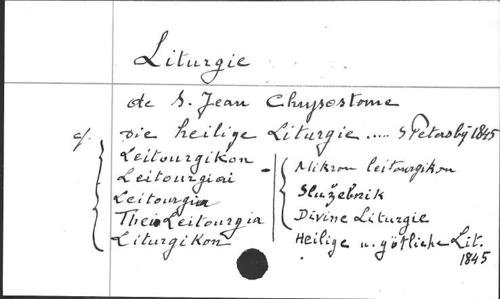 Liturgie
de S. Jean Chrysostome
cf. Die heilige Liturgie ..... S Petersbg 1845
Leitourgikon
Leitourgiai
Leitourgia
Theia Leitourgia
Liturgikon
- Mikron leitourgikon
Služebnik
Divine Liturgie
Heilige u. göttliche Lit.
1845